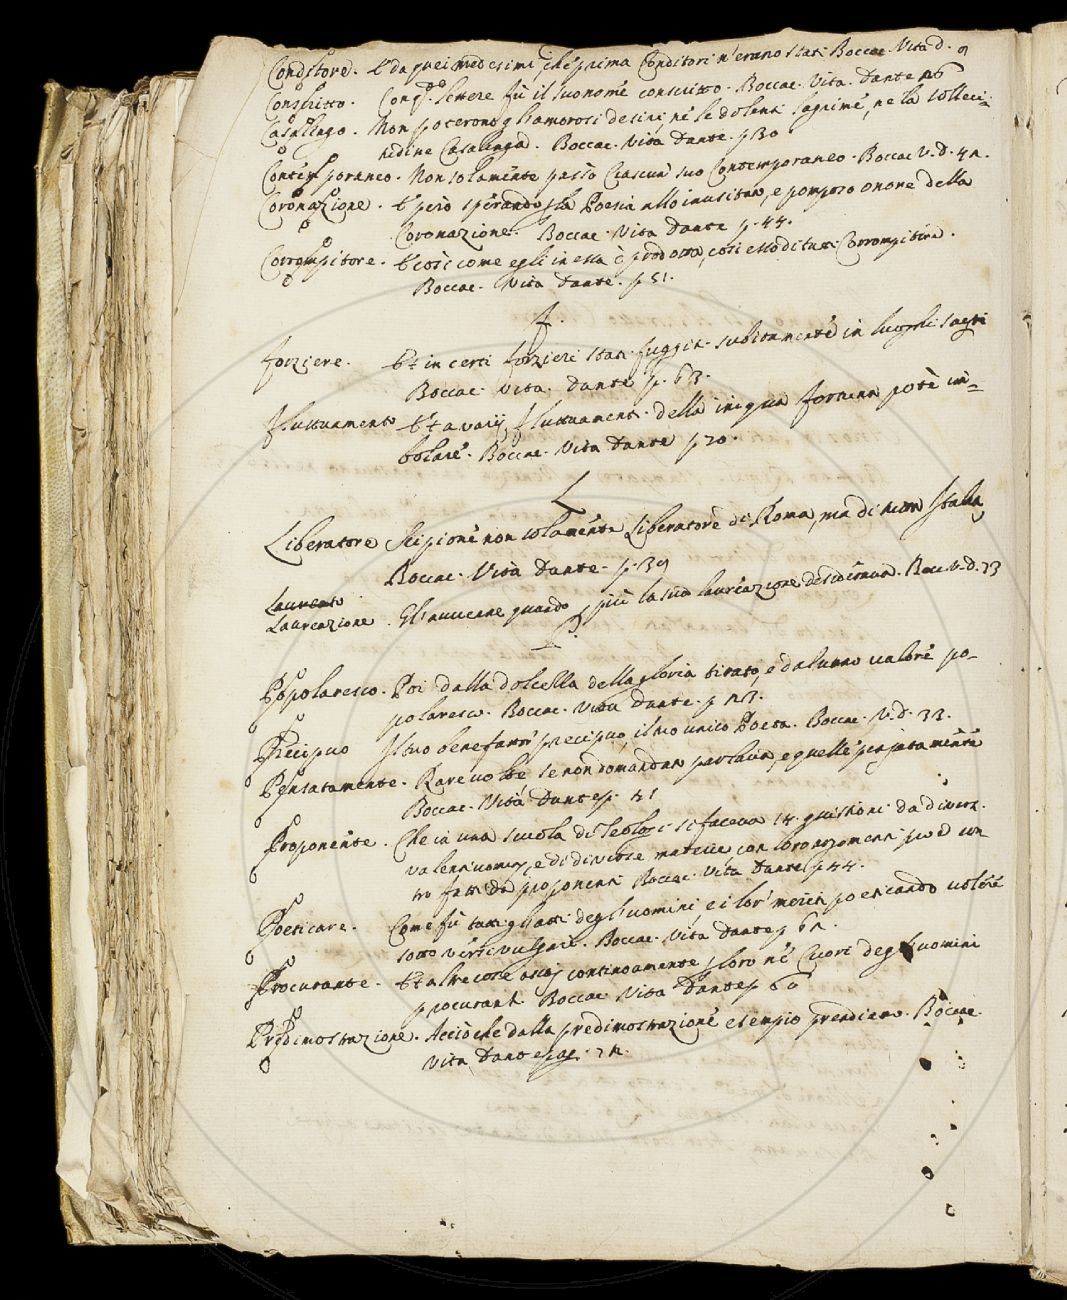 Conditore. E da quei medesimi, che prima Conditori n'erano stati. Boccac. Vita d. 9
Conscritto. Con q.ᵗᵉ lettere fù il suo nome conscritto. Boccac. Vita. Dante p. 16
Casalingo. Non poterono gli amorosi desiri, né le dolenti lagrime, né la solleci=
tudine Casalinga. Boccac. Vita Dante. p 30
Contemporaneo. Non solamente passò Ciascun suo Contemporaneo. Boccac V. d. 41.
Coronazione. E però sperando p la Poesia allo inusitato, e pomposo onore della
Coronazione. Boccac. Vita Dante p. 44.
Corrompitore. E così come egli in essa è prodotto, così esso di tutti Corrompitore.
Boccac. Vita Dante. p 51.
F.
Forziere. Et in certi forzieri stati fuggiti subitamente in luoghi sagri
Boccac. Vita. Dante p. 63.
Fluttuamento Et a varij fluttuamenti della iniqua fortuna potè in=
bolare. Boccac. Vita Dante p 20.
L
Liberatore Scipione non solamente Liberatore di Roma, ma di tutta Italia,
Boccac. Vita Dante. p. 39
Laurento
Laureazione. Gli avvenne quando più la sua laureazione desiderava. Bocc. V. d. 73
P.
Popolaresco. Poi dalla dolcezza della gloria tirato, e dal vano valore po-
polaresco. Boccac. Vita Dante. p 23.
Precipuo Il suo benefattor precipuo, il suo unico Poeta. Boccac. V. d. 33.
Pensatamente. Rare volte se non domandato parlava, e quelle pensatamente
Boccac. Vita Dante p. 41
Proponente. Che in una scuola di Teologi si faceva 14 quistioni da diversi
valentuomini, e di diverse materie, con loro argomenti pro ed con
tro fatti da proponenti Boccac. Vita Dante p 44.
Poeticare. Come fù tutti gli atti degli uomini, e i lor meriti poeticando volere
sotto versi vulgari. Boccac. Vita Dante p 61.
Procurante. Et altre cose assai continoamente p loro né Cuori degli uomini
procuranti Boccac Vita Dante p 60
Predimostrazione. Acciò che dalla predimostrazione esempio prendiamo. Boccac.
Vita Dante pag. 72.